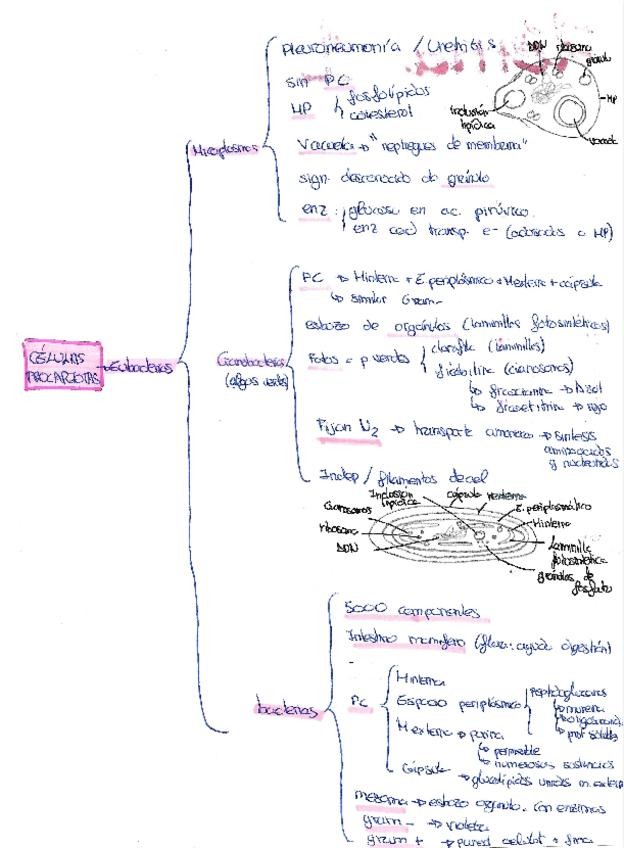 pleuroneumonía / Uretritis
sin PC
MP { fosfolípidos
colesterol
Vacuola → "repliegues de membrana"
sign. desconocido de gránulo
enz: { glucosa en ac. pirúvico
enz transp. e- (adosados a MP)
Micoplasmas
DDN ribosoma
MP
Inclusión
lipídica
vacuola
CÉLULAS
PROCARIOTAS
Eubacterias
Cianobacterias
(algas verdes)
PC → M interna + E. periplásmico + M externa + cápsula
↳ similar Gram-
esbozo de orgánulos (laminillas fotosintéticas)
Fotos a p verdes { clorofila (laminillas)
ficobilina (cianosomas)
↳ ficocianina → Azul
↳ ficoeritrina → rojo
Fijan N2 → transporte → síntesis
aminoácidos
y nucleótidos
Indep / filamentos de cel
Inclusión
lipídica
cápsula
M externa
Cianosomas
E. periplasmático
ribosoma
M interna
DDN
Laminilla
fotosintética
gránulos de
fosfato
bacterias
5000 componentes
Intestino mamífero (flora: ayuda digestión)
PC
M interna
Espacio periplásmico { peptidoglucanos
↳ mureina
↳ prot solubles
M externa → porina
↳ permeable
↳ numerosas sustancias
Cápsula → glucolípidos unidos m. externa
mesosoma → esbozo orgánulo. Con enzimas
gram - → violeta
gram + → pared celular + fina